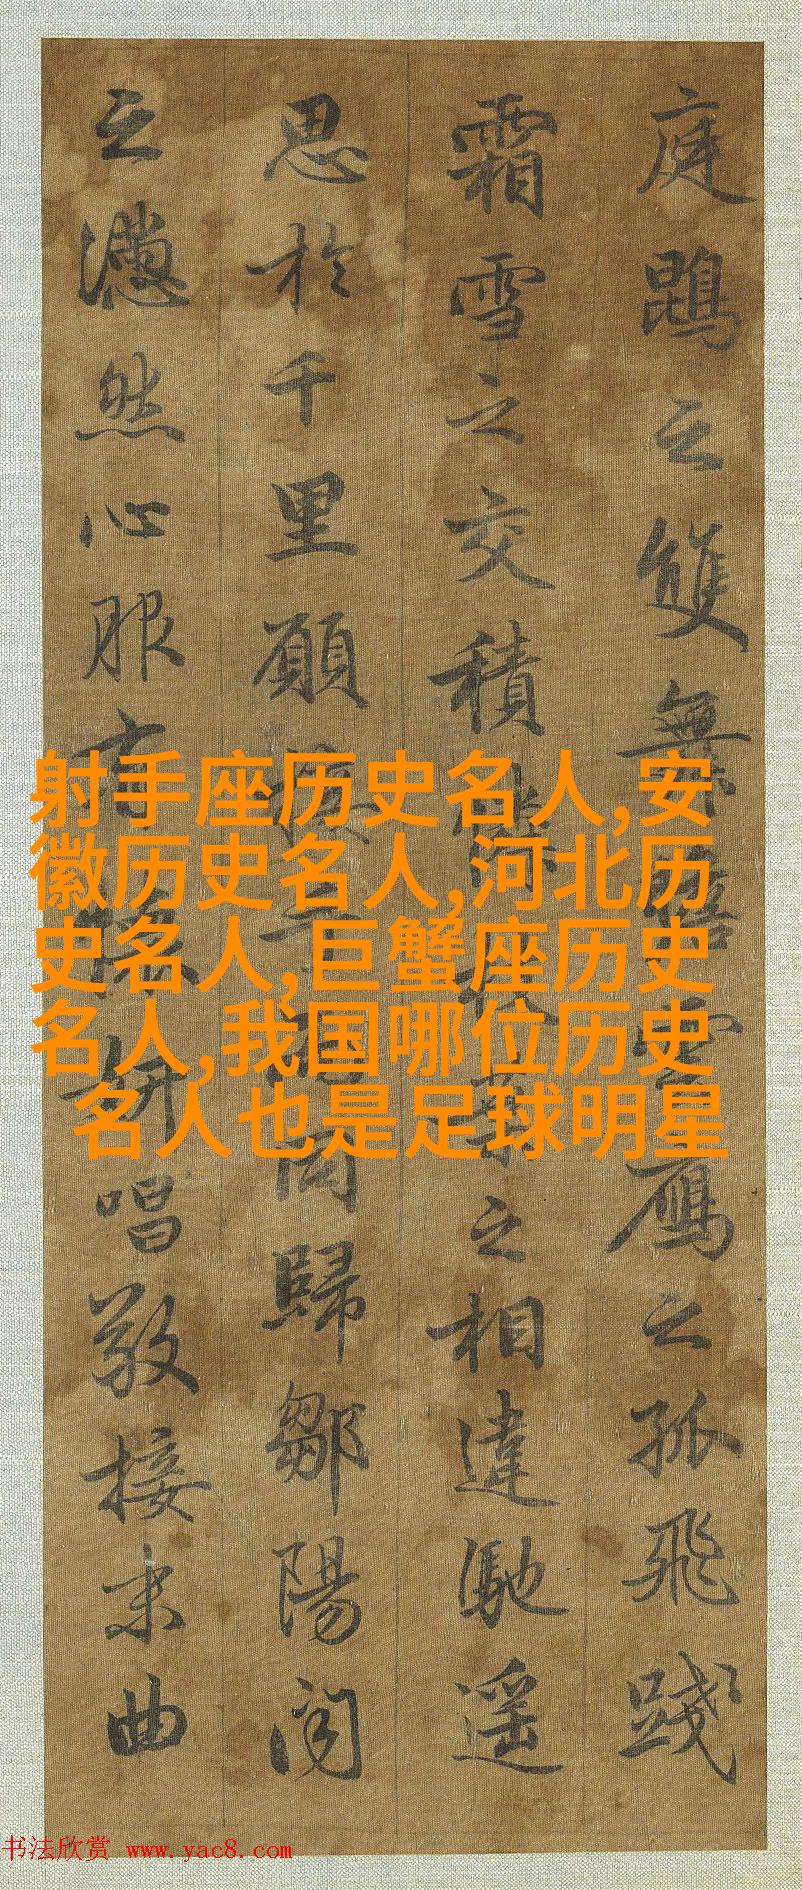 庭鵾之雙舞瞻雲鴈之孤飛踐
霜雪之交積憐枝葉之相違馳遥
思於千里願接手而同歸鄒陽聞
之懣然心服有懷妍唱敬接末曲
射手座历史名人,安
徽历史名人,河北历
史名人,巨蟹座历史
名人,我国哪位历史
名人也是足球明星
书法欣赏 www.yac8.com